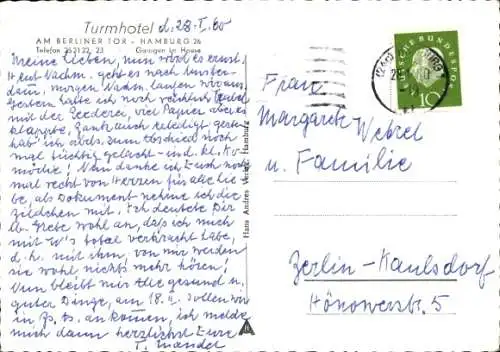 Turmhotel d. 28. I. 60
AM BERLINER TOR - HAMBURG 26
Telefon 25 21 22, 23 Garagen im Hause
Meine Lieben, nun wird es ernst!
Heut Nachm. geht es nach
dann, morgen Nachm. laufen wir aus.
Gestern hatte ich noch reichlich
mit der Reederei, viel Papier aber es
klappte, Gank auch erledigt, gestern
hab' ich abds. zum Abschied noch
mal tüchtig gelacht - und. kl. Ko-
mödie! Nun danke ich Euch noch
mal recht von Herzen für alle Lie-
be, als Dokument nehme ich die
mit. Ich deutete Dir
lb. Grete wohl an, daß ich mich
mit W's total verkracht habe,
d.h. mit ihm, von mir werden
sie wohl nichts mehr hören!
Nun bleibt mir Alle gesund u.
guter Dinge, am 18. sollen wir
in an kommen, ich melde
mich dann herzlichst Eure
Hans Andres Verlag Hamburg
DEUTSCHE BUNDESPOST
10
Frau
Margarete Wetzel
u. Familie
Berlin-Kaulsdorf
Hönowerstr. 5